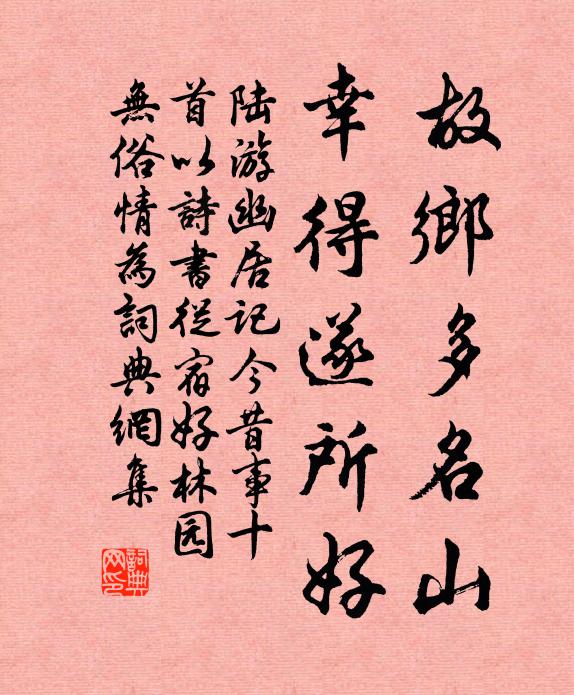 故鄉多名山
幸得遂所好
陆游幽居记今昔事十
首以詩書從宿好林园
無俗情為詞典網集
詞典网印